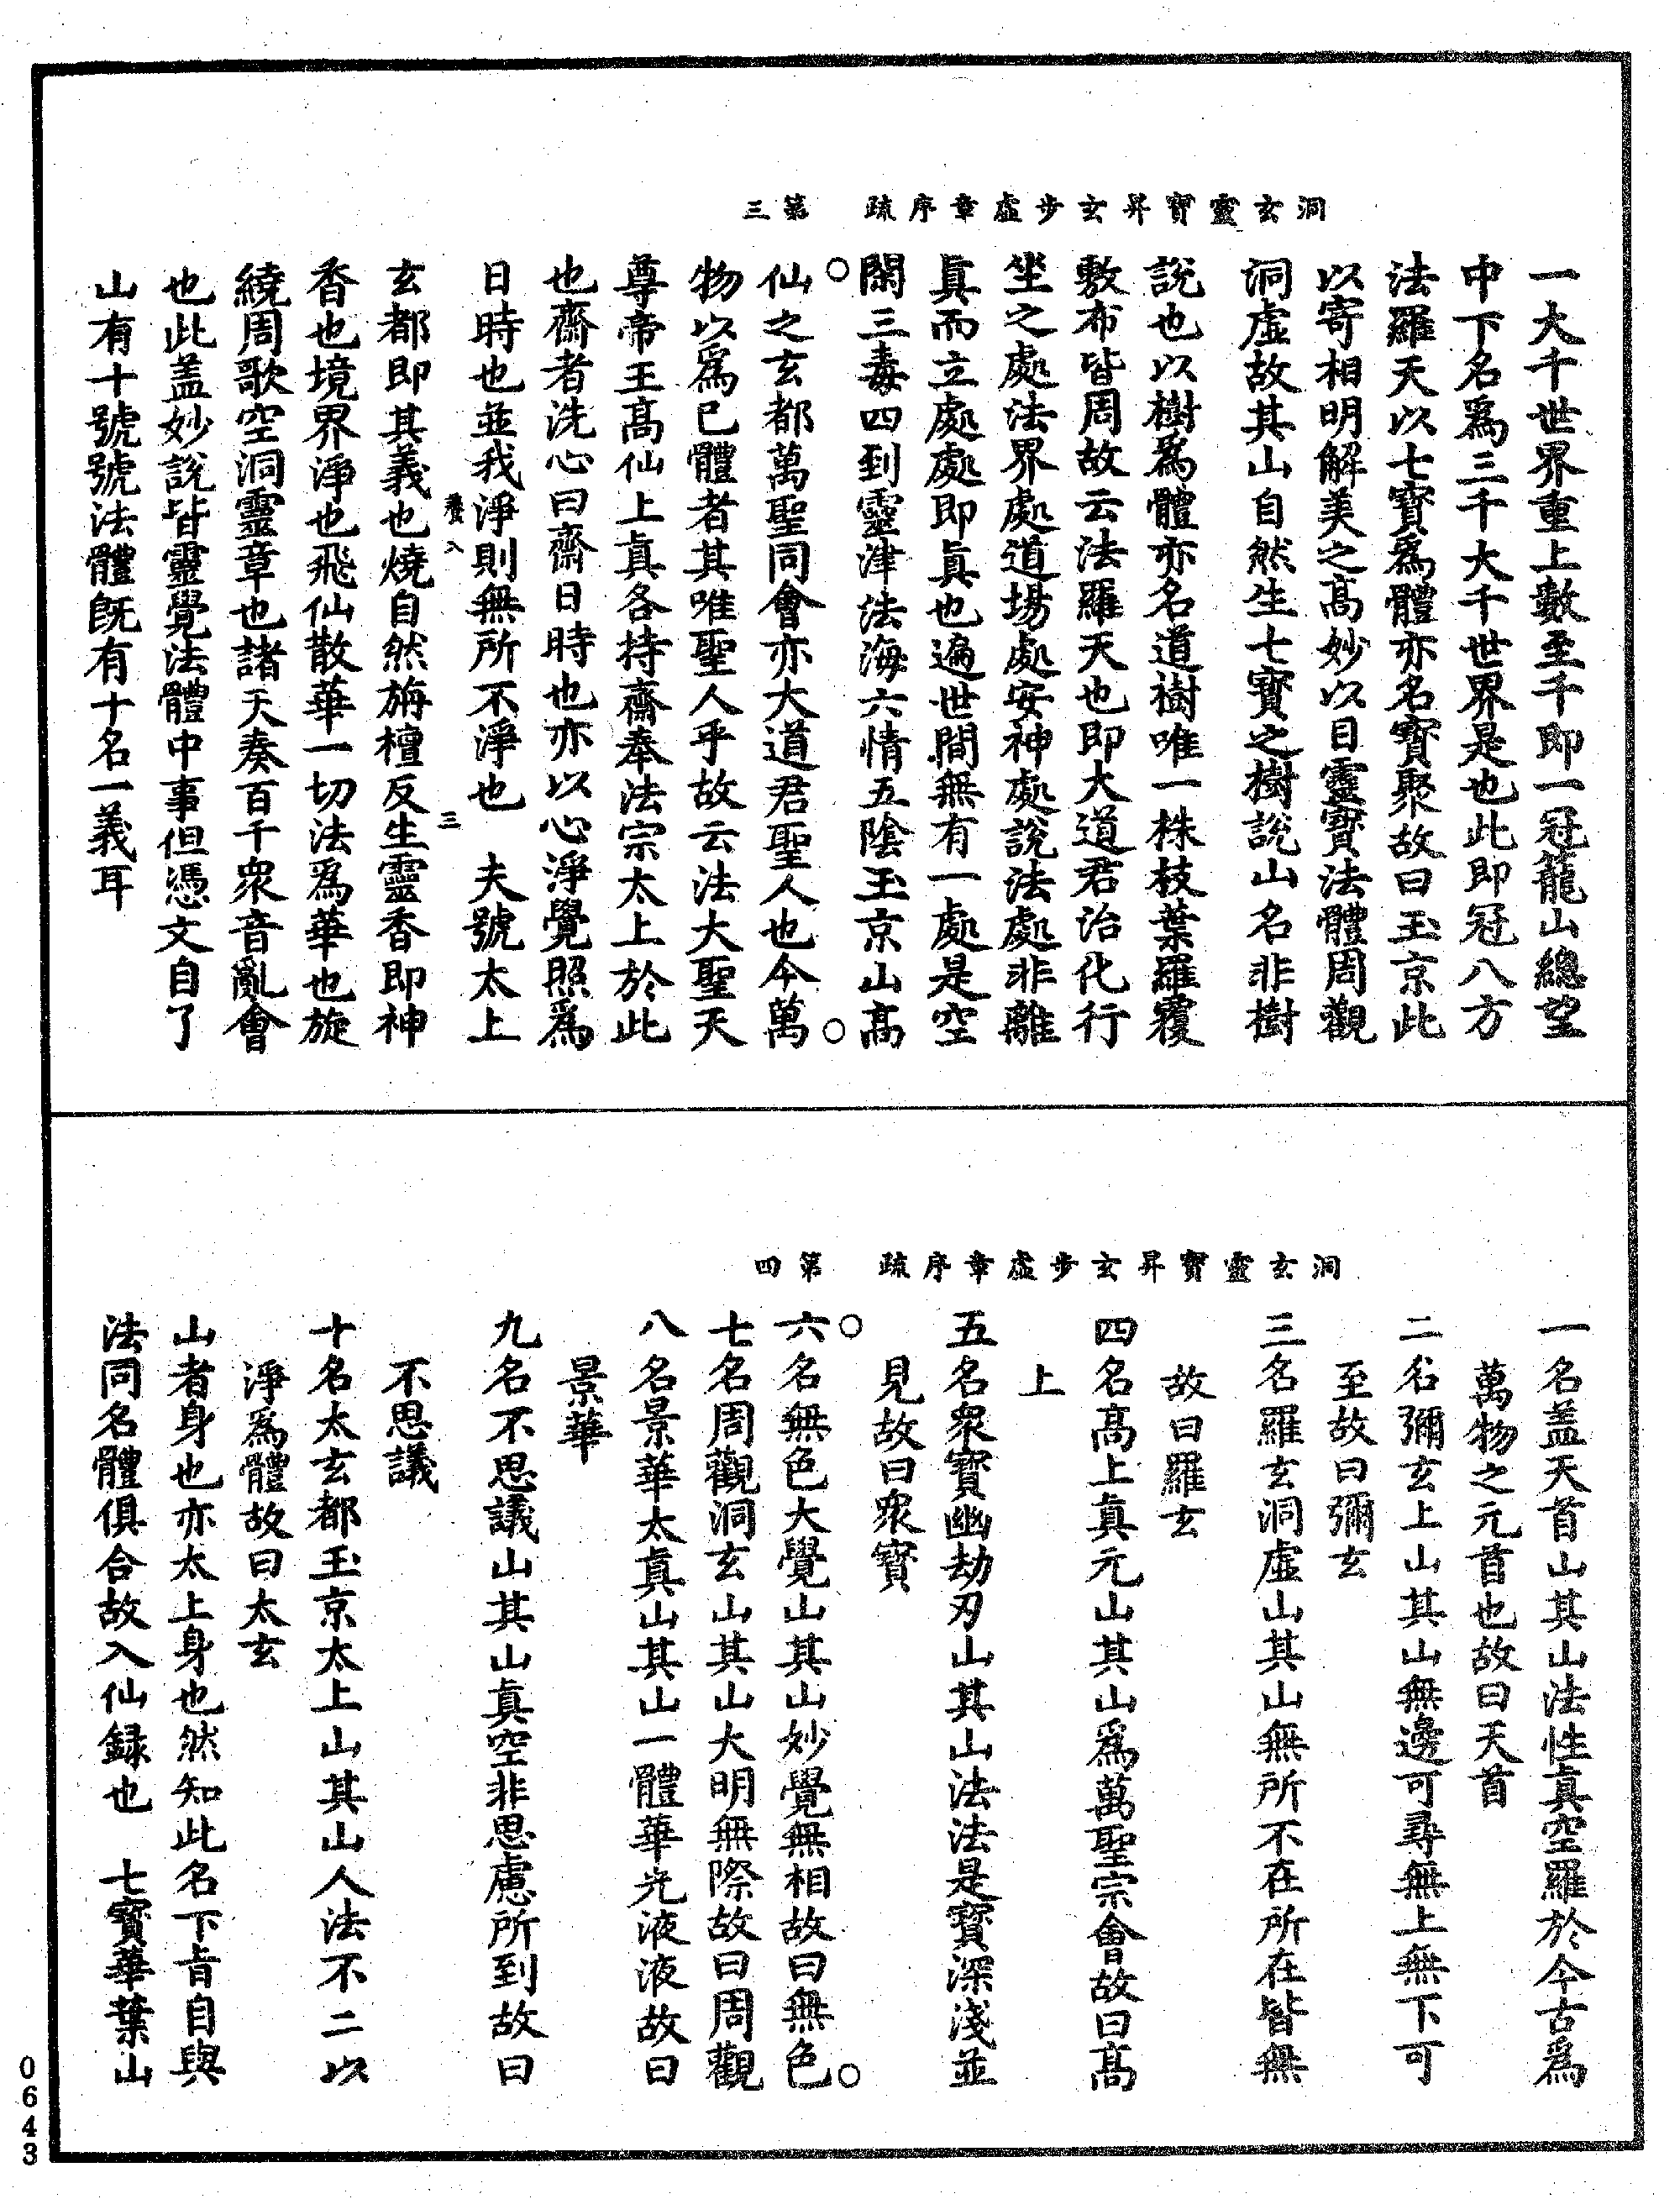 洞玄靈寶昇玄步虛章序疏　第三
一大千世界重上數至千即一冠蘢山總望
中下名爲三千大千世界是也此即冠八方
法羅天以七寳爲體亦名寳聚故曰玉京此
以寄相明解美之髙妙以目靈寳法體周觀
洞虛故其山自然生七寳之樹說山名非樹
說也以樹爲體亦名道樹唯一株枝葉羅覆
敷布皆周故云法羅天也即大道君治化行
坐之處法界處道場處安神處說法處非離
真而立處處即真也遍世間無有一處是空
閑三毒四到靈津法海六情五陰玉京山髙
仙之玄都萬聖同會亦大道君聖人也今萬
物以爲已體者其唯聖人乎故云法大聖天
尊帝王髙仙上真各持齋奉法宗太上於此
也齋者洗心曰齋日時也亦以心淨覺照爲
日時也並我淨則無所不淨也　夫號太上
養八　三
玄都即其義也燒自然旃檀反生靈香即神
香也境界淨也飛仙散華一切法爲華也旋
繞周歌空洞靈章也諸天奏百千衆音亂會
也此盖妙說皆靈覺法體中事但憑文自了
山有十號號法體旣有十名一義耳
洞玄靈寶昇玄步虛章序疏　第四
一名盖天首山其山法性真空羅於今古爲
萬物之元首也故曰天首
二名彌玄上山其山無邊可尋無上無下可
至故曰彌玄
三名羅玄洞虛山其山無所不在所在皆無
故曰羅玄
四名髙上真元山其山爲萬聖宗會故曰髙
上
五名衆寳幽劫刃山其山法法是寳深淺並
見故曰衆寳
六名無色大覺山其山妙覺無相故曰無色
七名周觀洞玄山其山大明無際故曰周觀
八名景華太真山其山一體華光液液故曰
景華
九名不思議山其山真空非思慮所到故曰
不思議
十名太玄都玉京太上山其山人法不二以
淨爲體故曰太玄
山者身也亦太上身也然知此名下㫖自與
法同名體俱合故入仙録也　七寳華葉山
0643